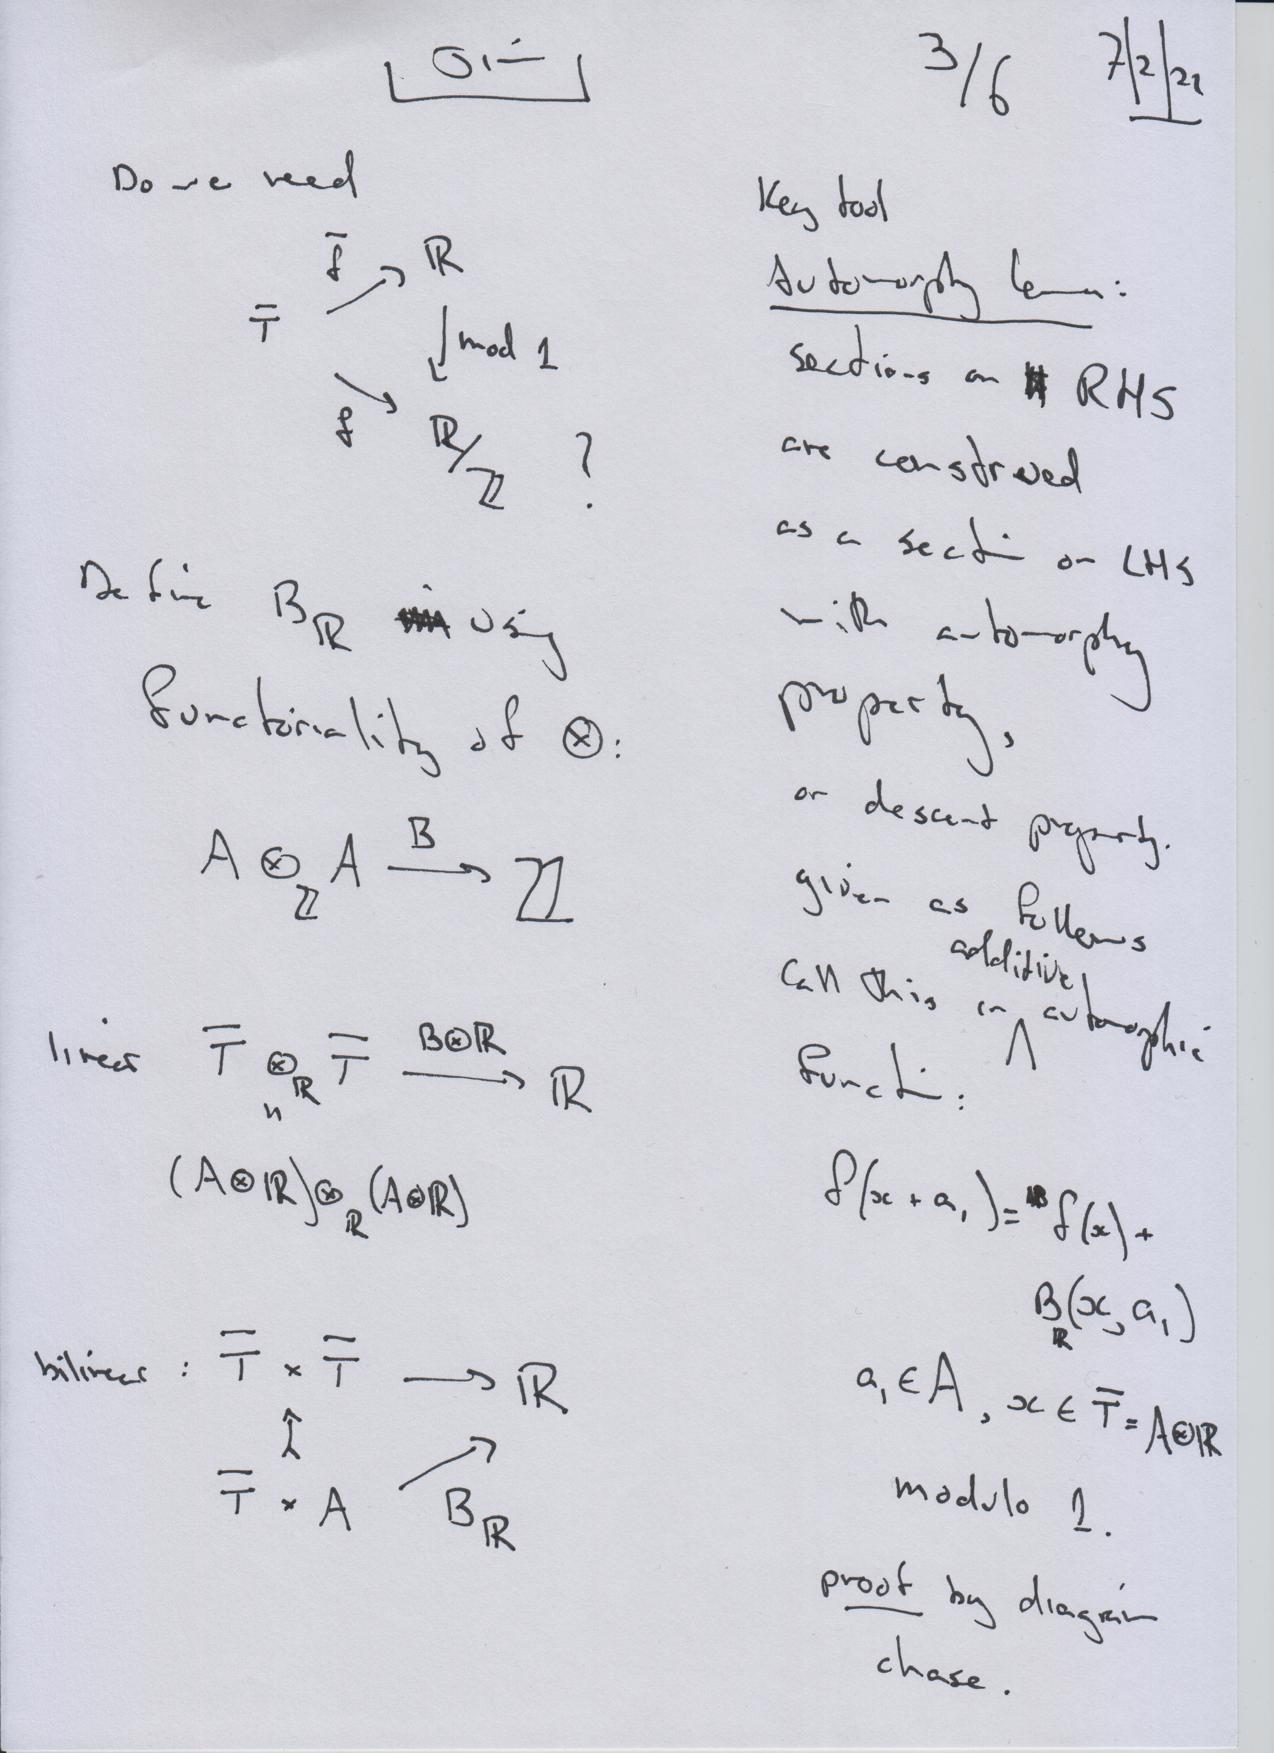 3/6 7/2/22
Do we need
f̄ ℝ
T̄
↓ mod 1
f ℝ/ℤ ?
Define B_ℝ using
functoriality of ⊗:
A ⊗_ℤ A —B→ ℤ
linear T̄ ⊗_ℝ T̄ —B⊗ℝ→ ℝ
"
(A⊗ℝ)⊗_ℝ(A⊗ℝ)
bilinear : T̄ × T̄ → ℝ
↑
T̄ × A ↗ B_ℝ
Key tool
Automorphy lemma:
sections on RHS
are construed
as a section on LHS
with automorphy
property,
or descent property.
given as follows
call this an additive automorphic
function:
f(x + a₁) = f(x) +
B_ℝ(x, a₁)
a₁ ∈ A, x ∈ T̄ = A⊗ℝ
modulo 1.
proof by diagram
chase.